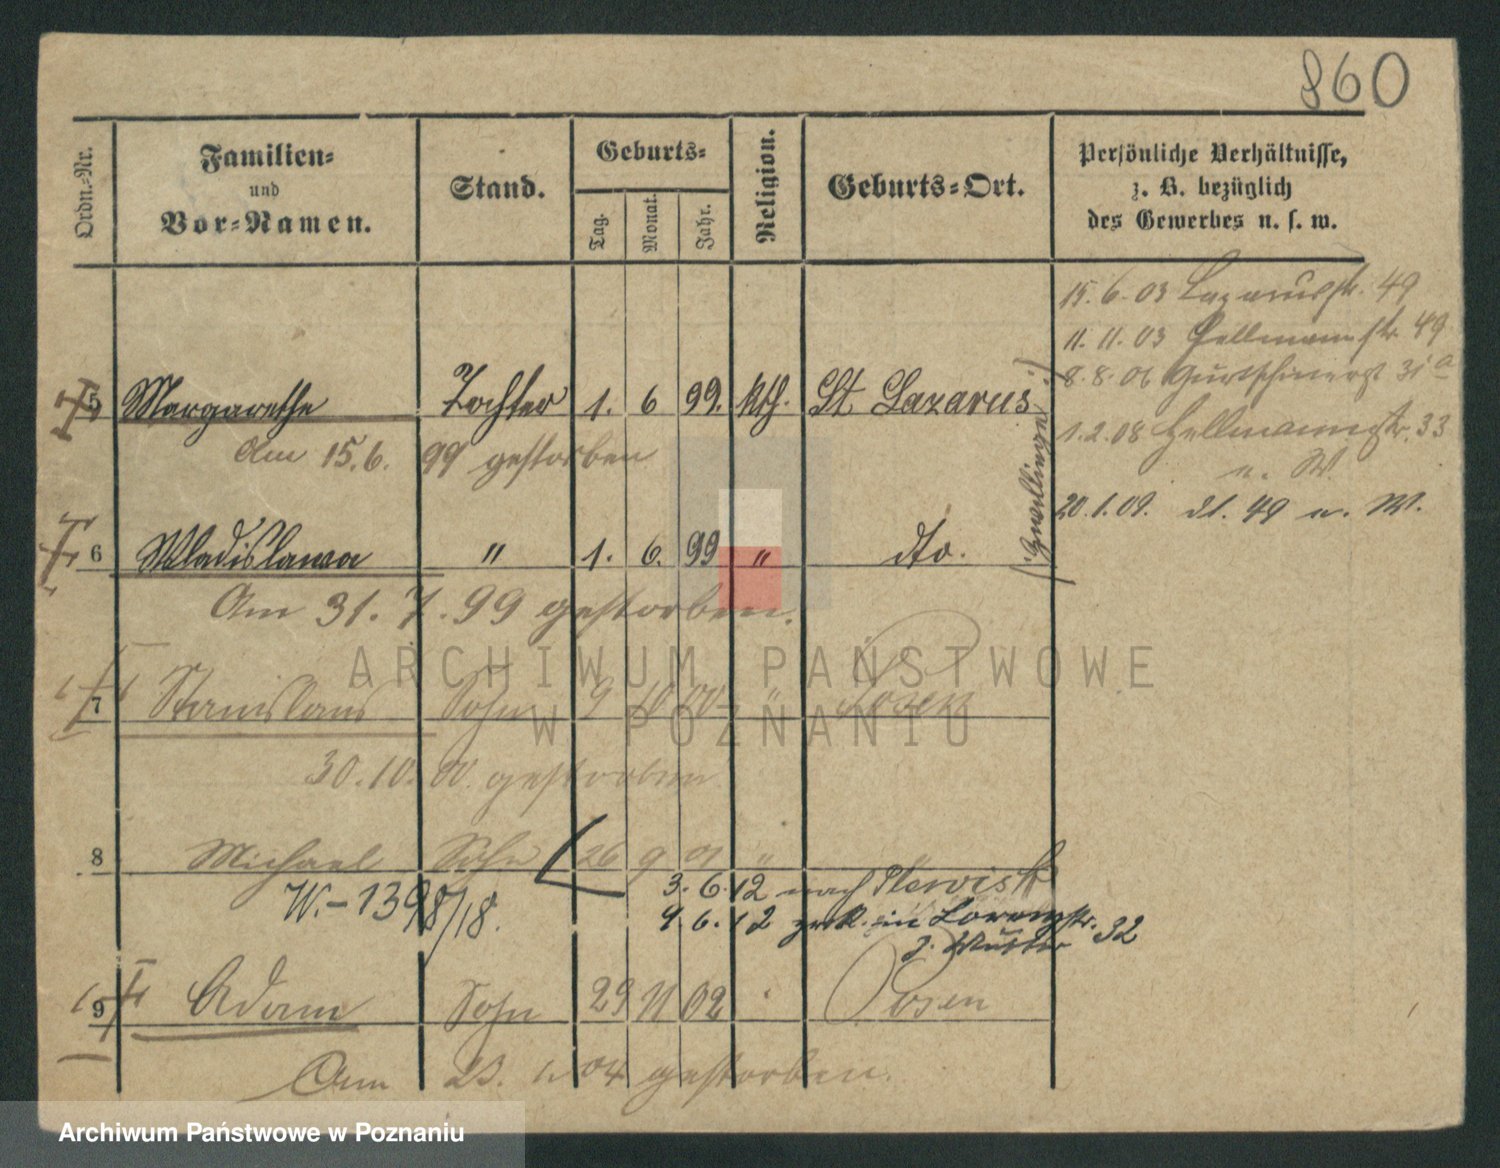 860
Ordn.-Nr. Familien- und Vor-Namen. Stand. Geburts- Tag. Monat. Jahr. Religion. Geburts-Ort. Persönliche Verhältnisse, z. B. bezüglich des Gewerbes u. s. w.
15.6.03 Lazarusstr. 49
11.11.03 Hellmannstr. 49
8.8.06 Gurtschinerst 31a
1.2.08 Hellmannstr. 33
u. W.
20.1.09. dt. 49 u. W.
5 Margarethe Tochter 1. 6 99. kth. St Lazarus
Am 15.6. 99 gestorben
(Zwillinge)
6 Wladislawa " 1. 6. 99 " dto.
Am 31. 7. 99 gestorben.
7 Stanislaus Sohn 9 10 00 " Posen
30.10. 00. gestorben
8 Michael Sohn 26 9 01 "
W.-1398/18.
3. 6. 12 nach Plewisk
9. 6. 12 zrk. in Lorenzstr. 32
z. Mutter
9 Adam Sohn 29 11 02 Posen
Am 23. 1. 04 gestorben.
ARCHIWUM PAŃSTWOWE
W POZNANIU
Archiwum Państwowe w Poznaniu